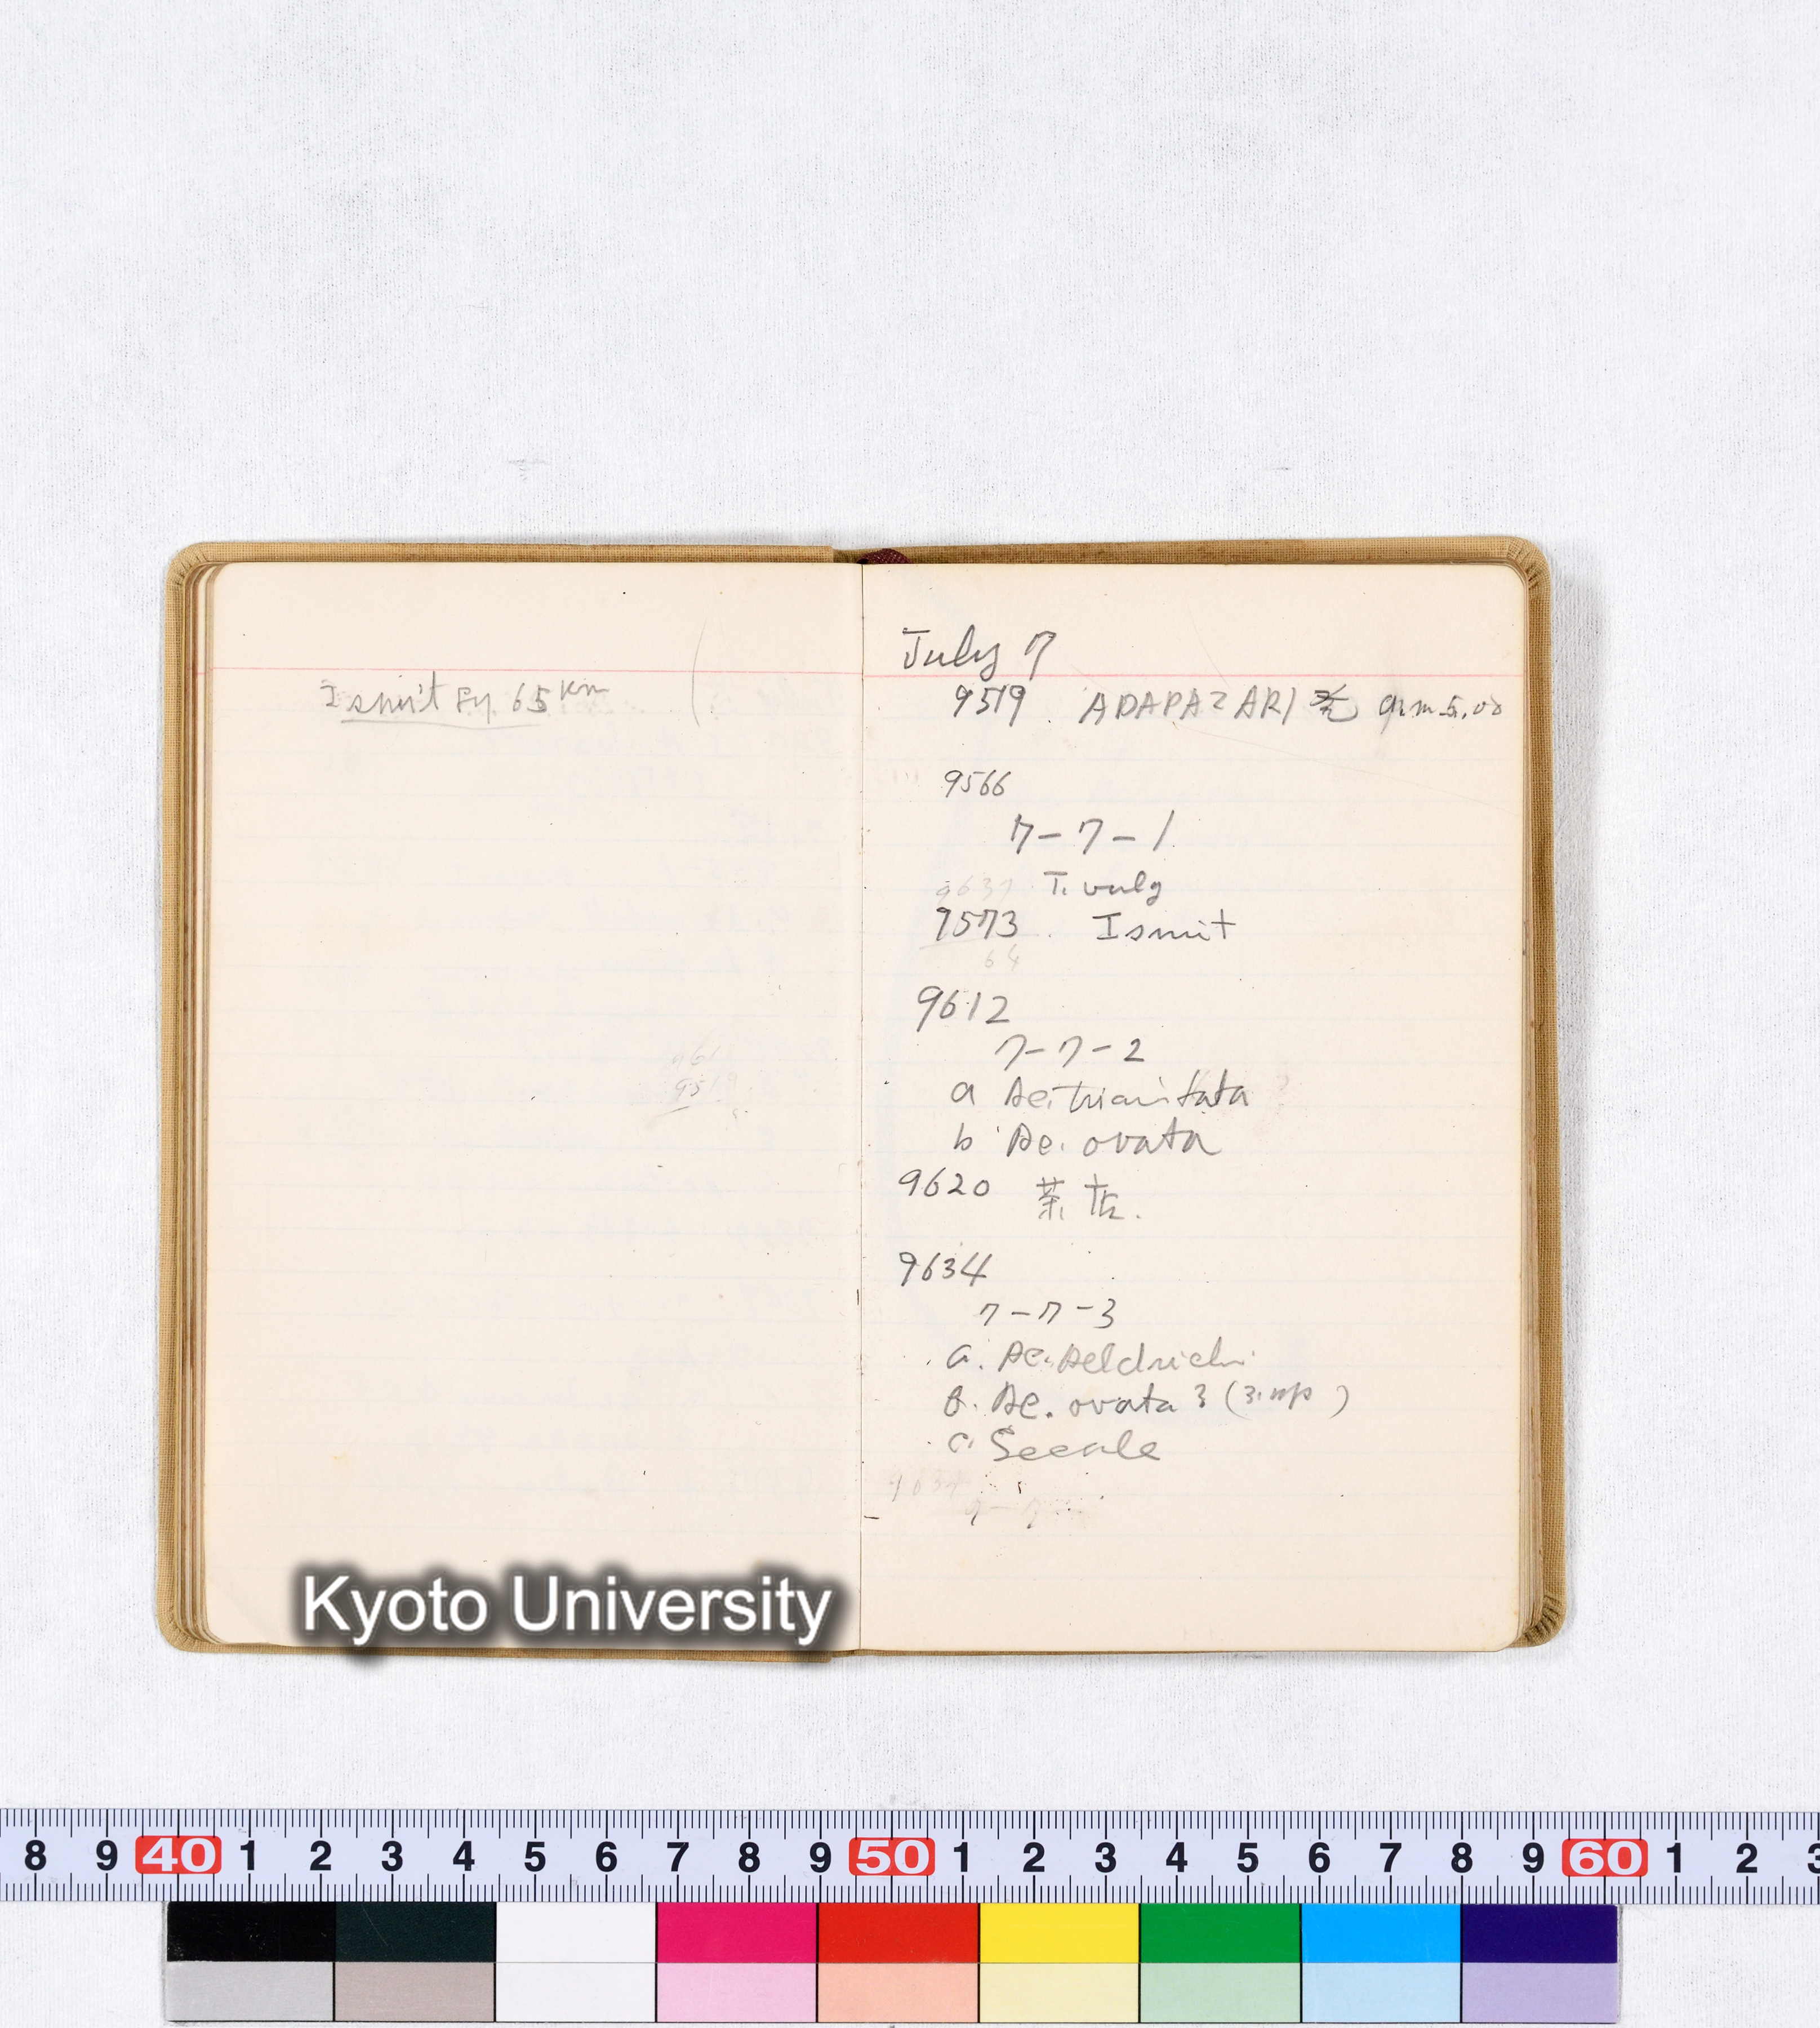 Ismit より 65 km
July 7
9519 ADAPAZARI 発 a.m. 5.00
9566
7-7-1
9637 T. vulg
9573 Ismit
64
9612
7-7-2
a Ae. triaristata
b Ae. ovata
9620 茶店.
9634
7-7-3
a. Ae. Heldrichi
b. Ae. ovata 3 (3. sp )
c. Secale
9634
7-7-
Kyoto University
8 9 40 1 2 3 4 5 6 7 8 9 50 1 2 3 4 5 6 7 8 9 60 1 2 3